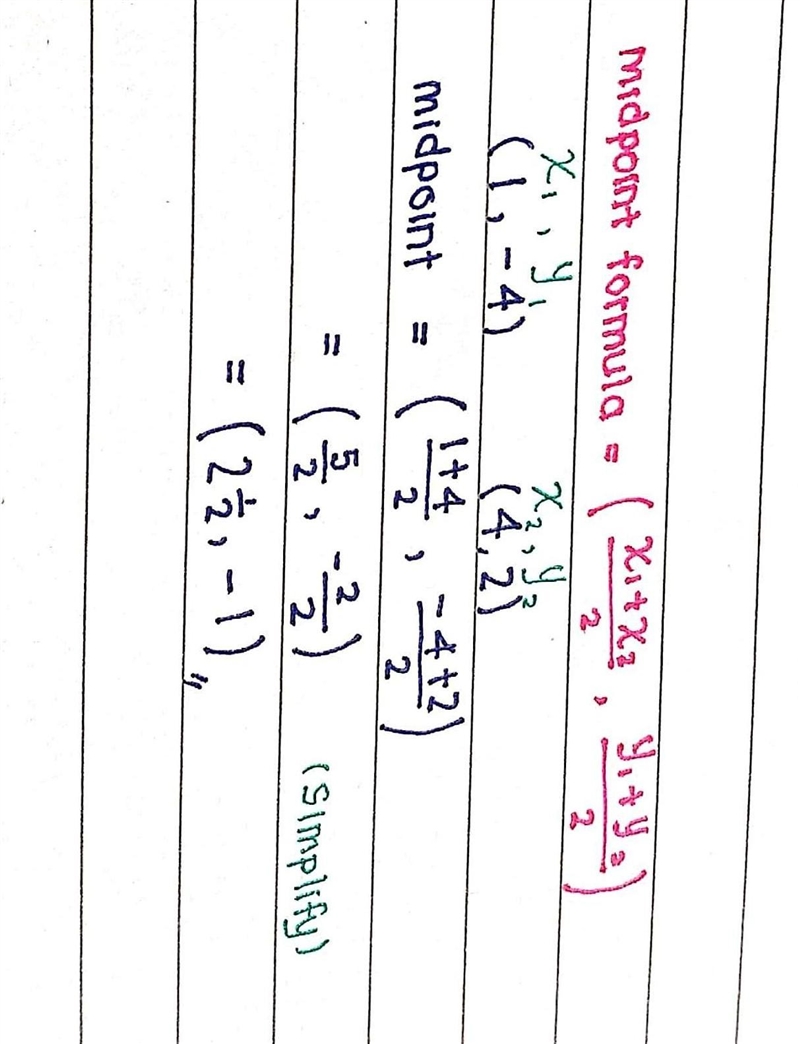 midpoint formula = ( x₁+x₂/2 , y₁+y₂/2 )
x₁ , y₁ x₂, y₂
(1, -4) (4, 2)
midpoint = ( 1+4/2 , -4+2/2 )
= ( 5/2 , -2/2 ) (simplify)
= ( 2 1/2 , -1 )〃